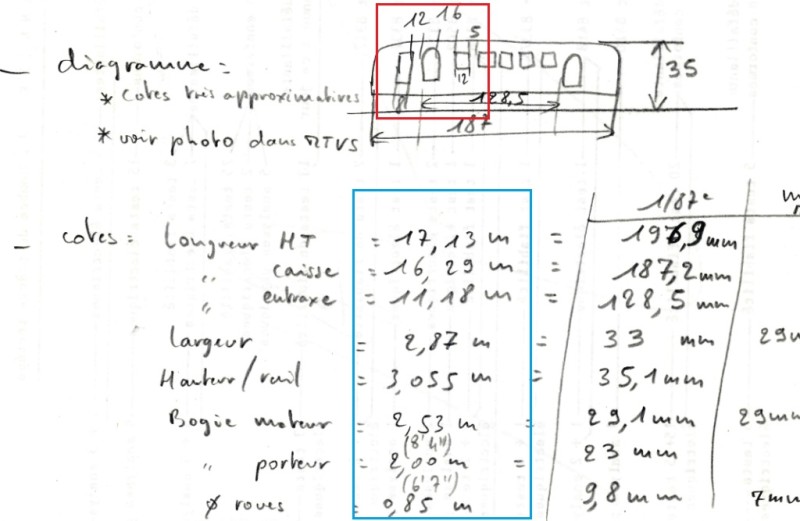 12 16
5
12
8
128,5
187
35
— diagramme =
* cotes très approximatives
* voir photo dans RTVS
1/87e
— cotes = Longueur HT = 17,13 m = 196,9 mm
" caisse = 16,29 m = 187,2 mm
" entraxe = 11,18 m = 128,5 mm
largeur = 2,87 m = 33 mm 29 m
Hauteur/rail = 3,055 m = 35,1 mm
Bogie moteur = 2,53 m = 29,1 mm 29 mm
(8'4")
" porteur = 2,00 m = 23 mm
(6'7")
ø roues = 0,85 m 9,8 mm 7 mm